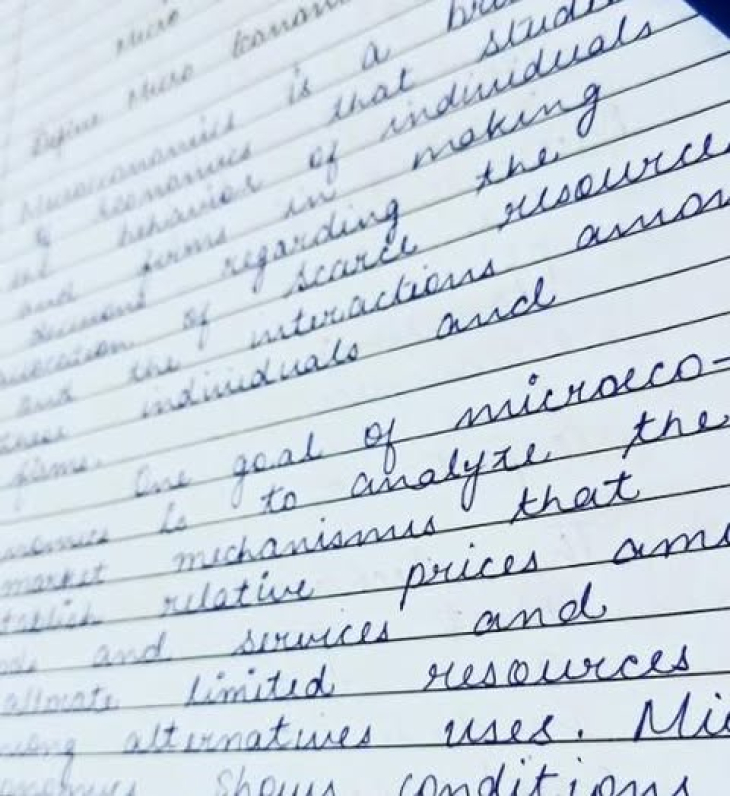 Micro
Define Micro Econom
Microeconomics is a br
of economics that studi
the behavior of individuals
and firms in making
decisions regarding the
allocation of scarce resource
and the interactions amon
these individuals and
firms.
One goal of microeco-
nomics is to analyze the
market mechanisms that
tablish relative prices amo
ods and services and
allocate limited resources
mong alternatives uses. Mic
onomics shows conditions